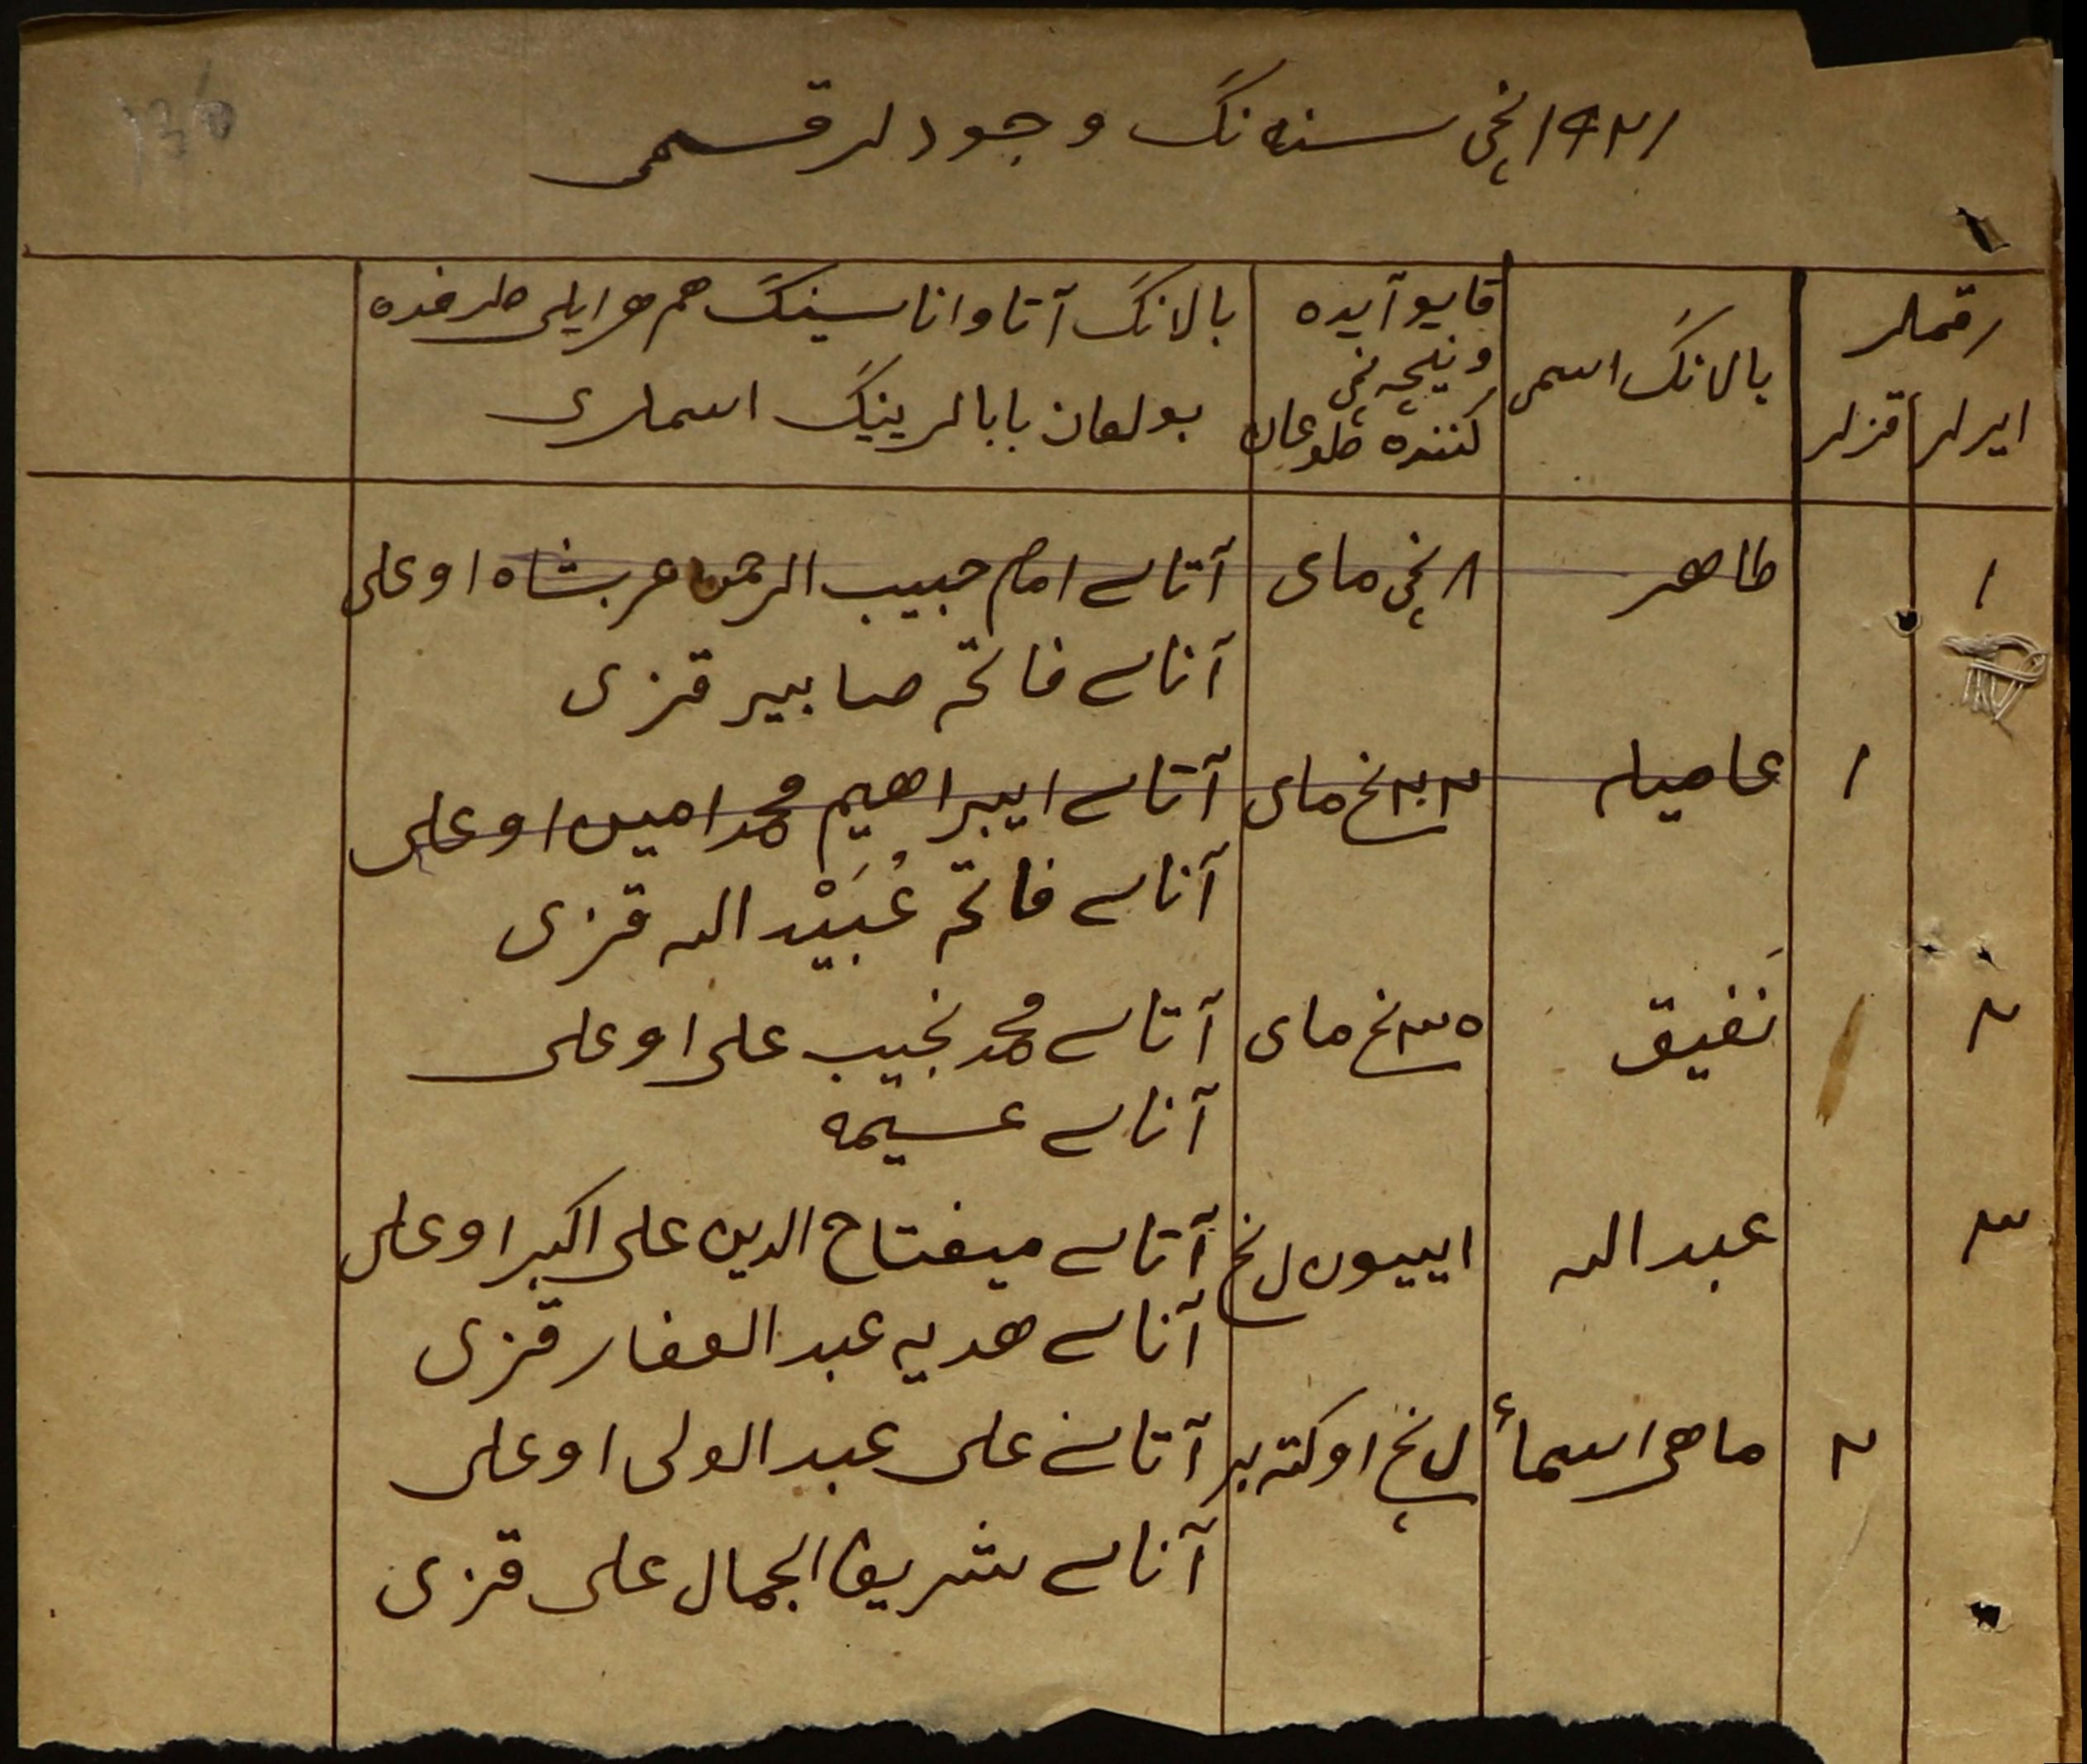 ١٩٢١ نچی سنه نڭ وجودلر قسمی
رقملر
ایرلر قزلر
بالانڭ اسمی
قایو آیده
و نیچه نچی
كننده طوغان
بالانڭ آتا و اناسینڭ هم هر ایلی طرفده
بولغان بابالرینیڭ اسملری
١ طاهر ٨ نچی مای آتاسے امام حبیب الرحمن عربشاه اوغلی
آناسے فاتحه صابیر قزی
١ عاصیه ٢٢ نچ مای آتاسے ایبراهیم محمد امین اوغلی
آناسے فاتحه عُبَیْد الله قزی
٢ نَفیق ٣٥ نچ مای آتاسے محمد نجیب علی اوغلی
آناسے عسیمه
٣ عبد الله اییون ل نچ آتاسے میفتاح الدین علی اكبر اوغلی
آناسے هدیه عبد الغفار قزی
٢ ماهی اسمأ ل نچ اوكته بر آتاسے علی عبد الولی اوغلی
آناسے شریف الجمال علی قزی